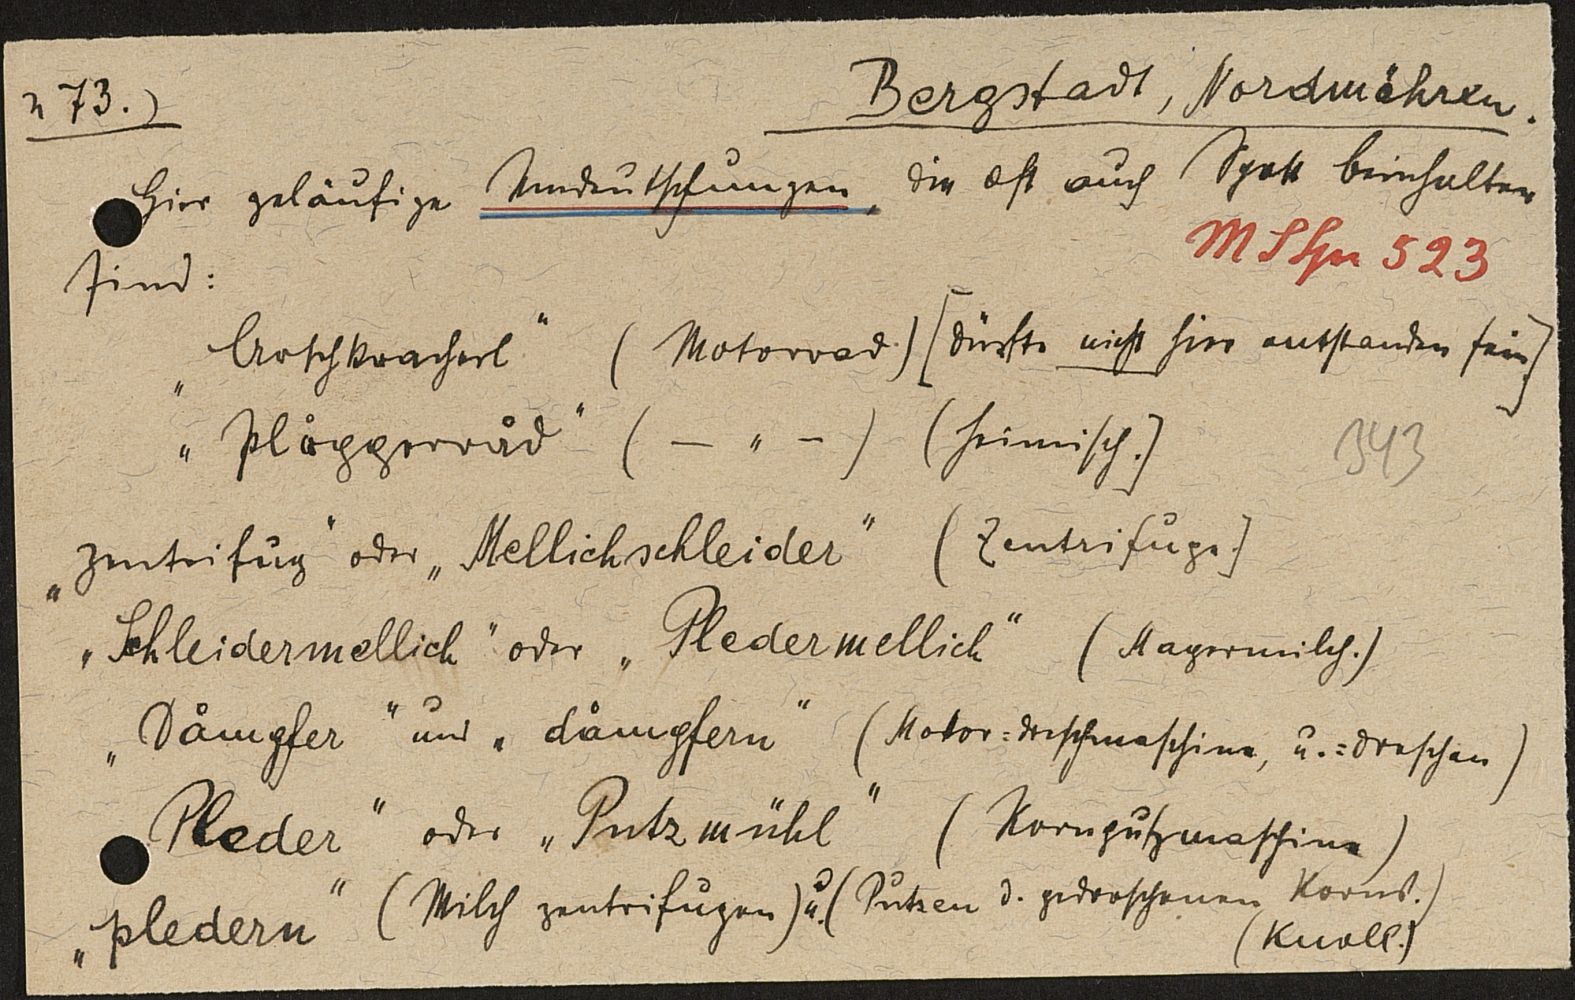 n 73.)
Bergstadt, Nordmähren.
Hier geläufige Umdeutschungen, die oft auch Spott beinhalten
sind:
MSHn 523
„Arschkracherl“ (Motorrad.) [dürfte nicht hier entstanden sein]
„Plåggerråd“ (— „ —) (heimisch.]
343
„Zentrifug“ oder „Mellichschleider“ (Zentrifuge.]
„Schleidermellich“ oder „Pledermellich“ (Magermilch.)
„Dåmpfer“ und „dåmpfern“ (Motor=dreschmaschine, u.=dreschen)
Pleder“ oder „Putzmühl“ (Kornputzmaschine)
„pledern“ (Milch zentrifugen) u. (Putzen d. gedroschenen Korns.)
(Knoll.)